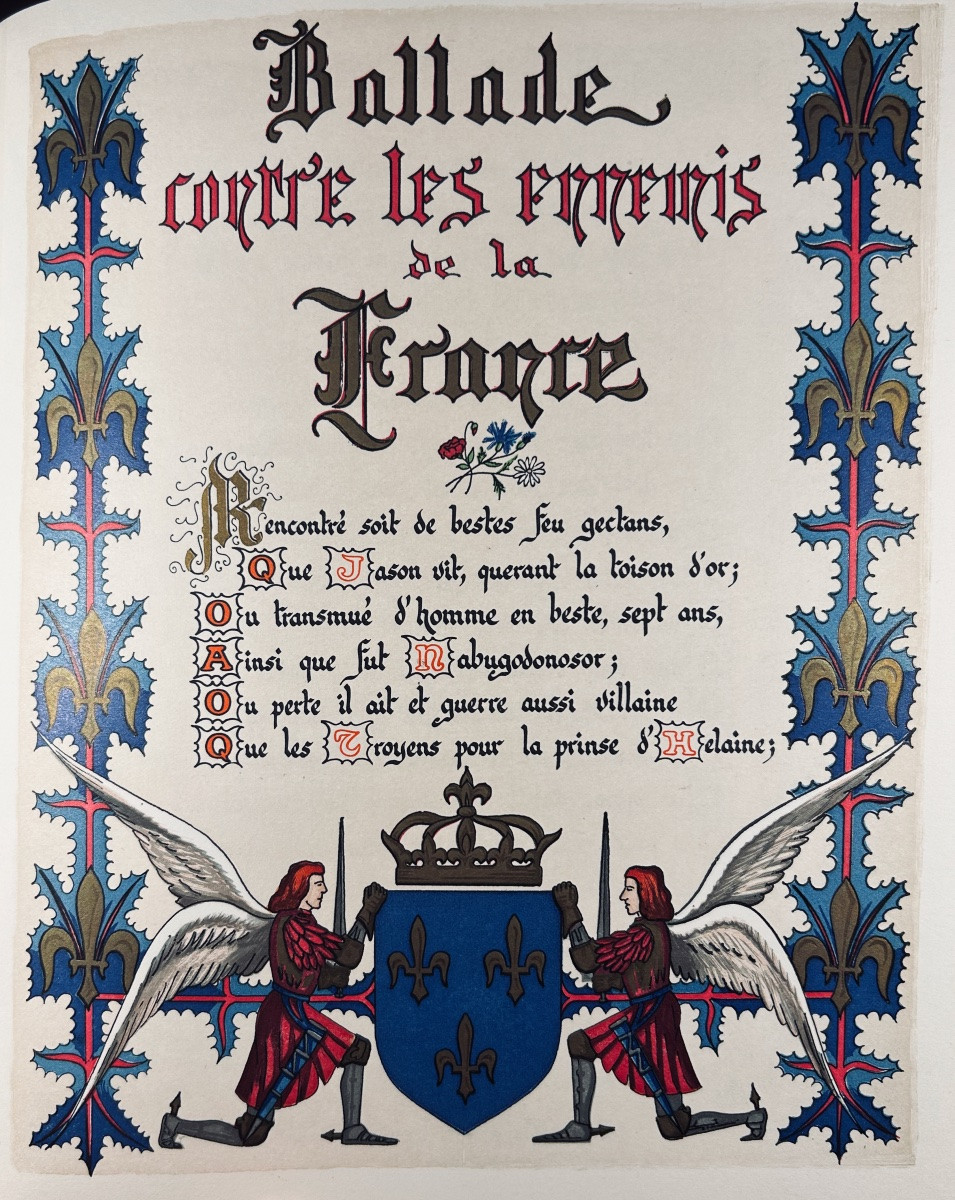 Ballade
contre les ennemis
de la
France
Rencontré soit de bestes feu gectans,
Que Jason vit, querant la toison d'or;
Ou transmué d'homme en beste, sept ans,
Ainsi que fut Nabugodonosor;
Ou perte il ait et guerre aussi villaine
Que les Troyens pour la prinse d'Helaine;